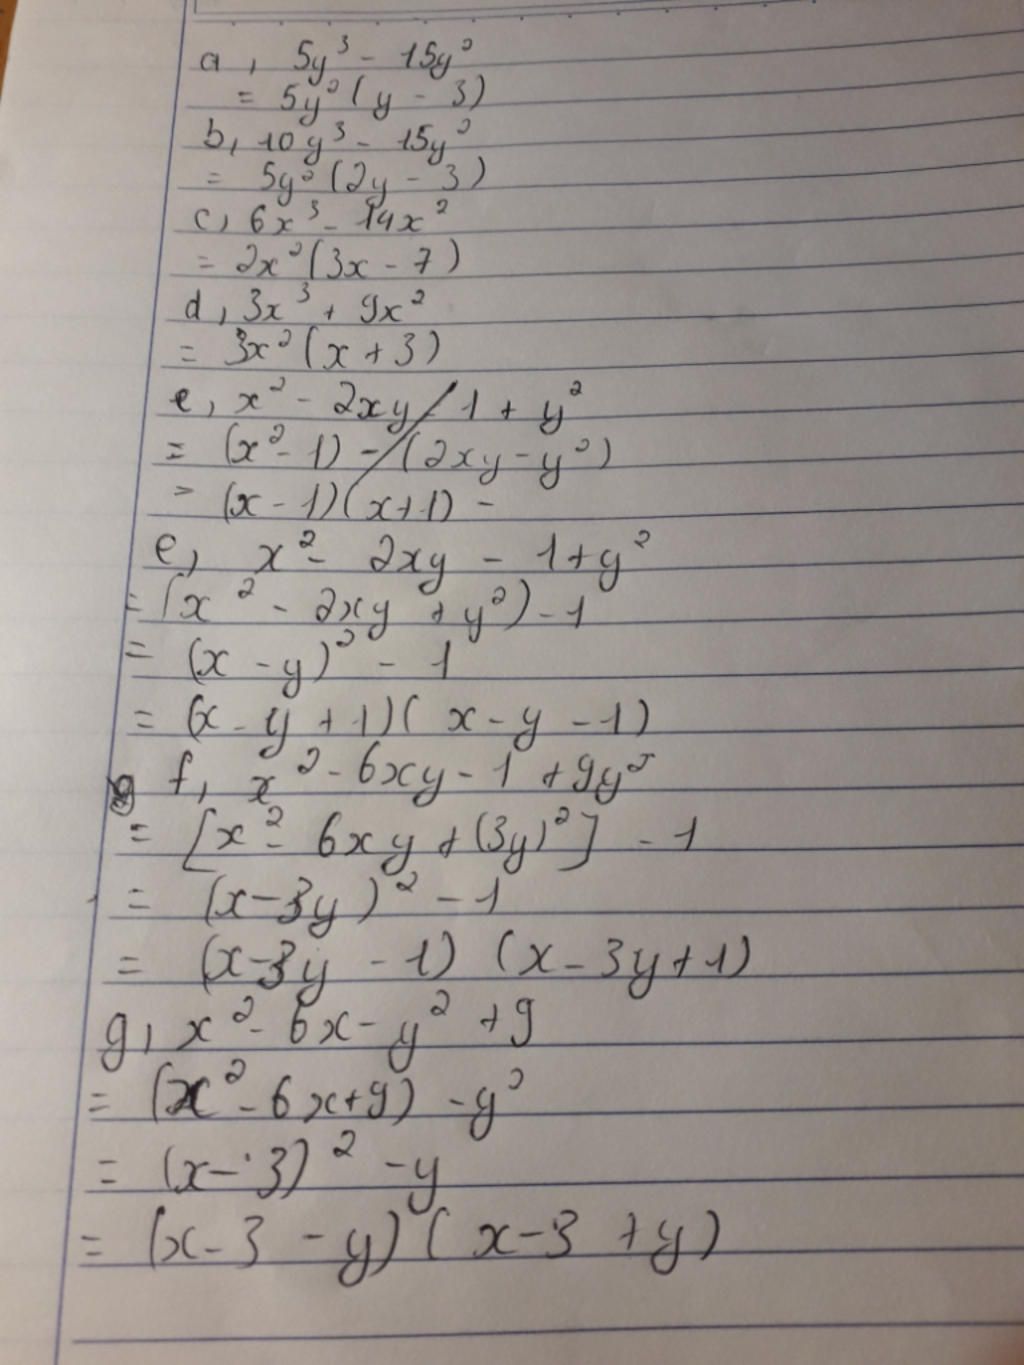 a, 5y³ - 15y²
= 5y²(y - 3)
b, 10y³ - 15y²
= 5y²(2y - 3)
c, 6x³ - 14x²
= 2x²(3x - 7)
d, 3x³ + 9x²
= 3x²(x + 3)
e, x² - 2xy - 1 + y²
= (x² - 1) - (2xy - y²)
= (x - 1)(x + 1) -
e, x² - 2xy - 1 + y²
= (x² - 2xy + y²) - 1
= (x - y)² - 1
= (x - y + 1)(x - y - 1)
f, x² - 6xy - 1 + 9y²
= [x² - 6xy + (3y)²] - 1
= (x - 3y)² - 1
= (x - 3y - 1) (x - 3y + 1)
g, x² - 6x - y² + 9
= (x² - 6x + 9) - y²
= (x - 3)² - y
= (x - 3 - y)(x - 3 + y)